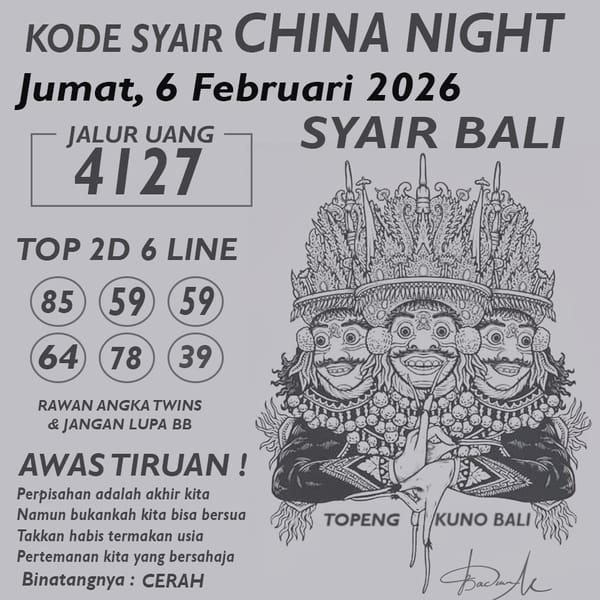 KODE SYAIR CHINA NIGHT
Jumat, 6 Februari 2026
SYAIR BALI
JALUR UANG
4127
TOP 2D 6 LINE
85 59 59
64 78 39
RAWAN ANGKA TWINS
& JANGAN LUPA BB
AWAS TIRUAN !
Perpisahan adalah akhir kita
Namun bukankah kita bisa bersua
Takkan habis termakan usia
Pertemanan kita yang bersahaja
Binatangnya : CERAH
TOPENG KUNO BALI